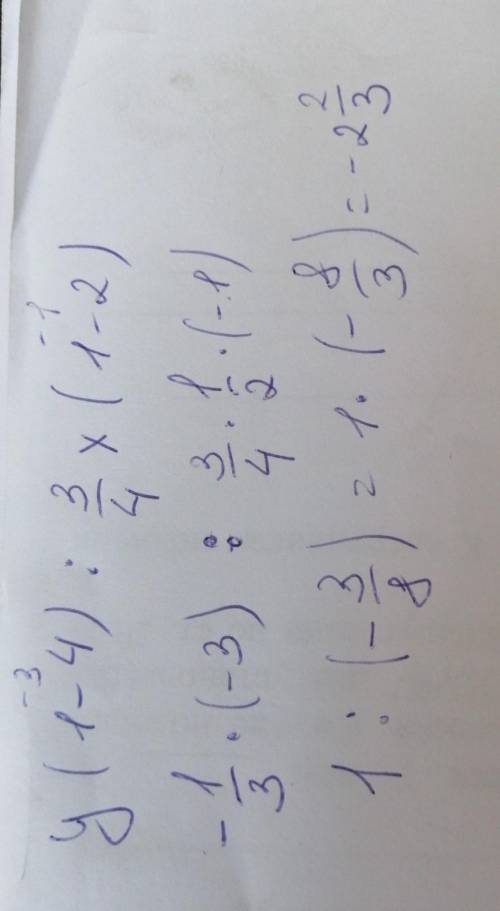 y(1-4) : 3/4 x(1-2)
-3 -1
-1/3 · (-3) : 3/4 · 1/2 · (-1)
1 : (-3/8) = 1 · (-8/3) = -2 2/3